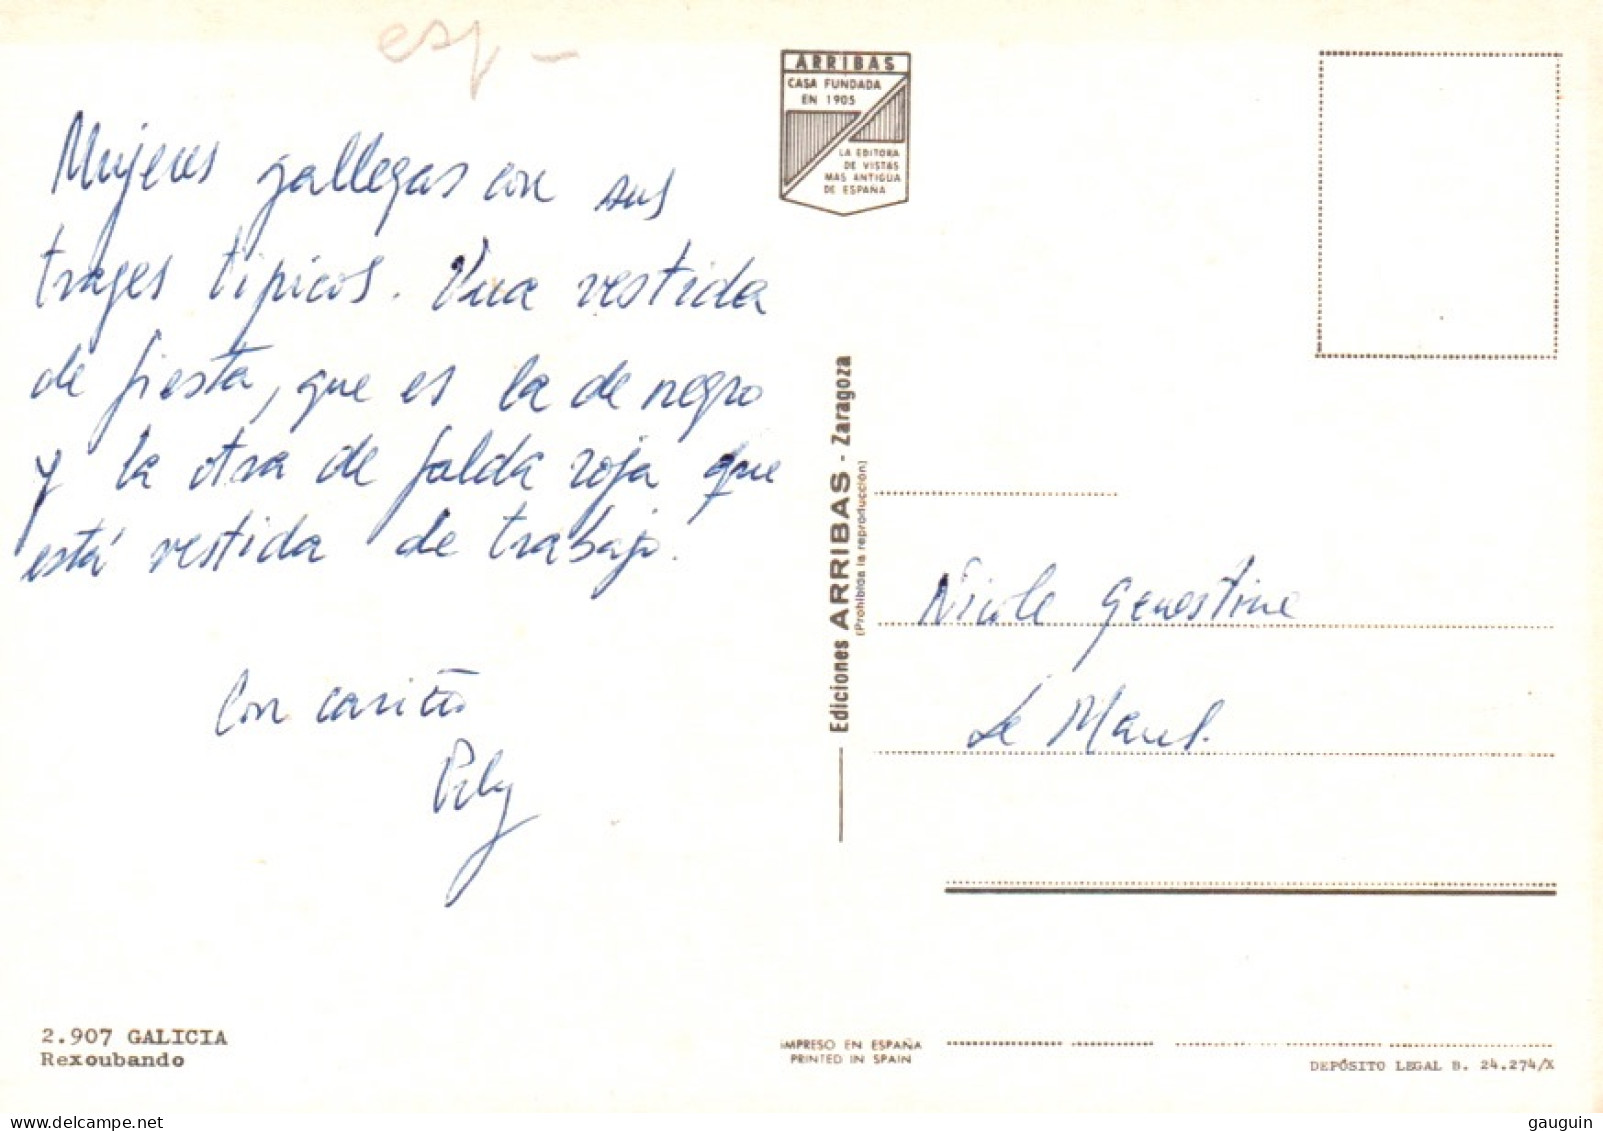 esp -
ARRIBAS
CASA FUNDADA
EN 1905
LA EDITORA
DE VISTAS
MAS ANTIGUA
DE ESPAÑA
Mujeres gallegas con sus
trages típicos. Una vestida
de fiesta, que es la de negro
y la otra de falda roja que
está vestida de trabajo.
Con cariño
Pily
Ediciones ARRIBAS - Zaragoza
(Prohibida la reproducción)
Nicole Genestine
Le Mans.
2.907 GALICIA
Rexoubando
IMPRESO EN ESPAÑA
PRINTED IN SPAIN
DEPÓSITO LEGAL B. 24.274/X
gauguin